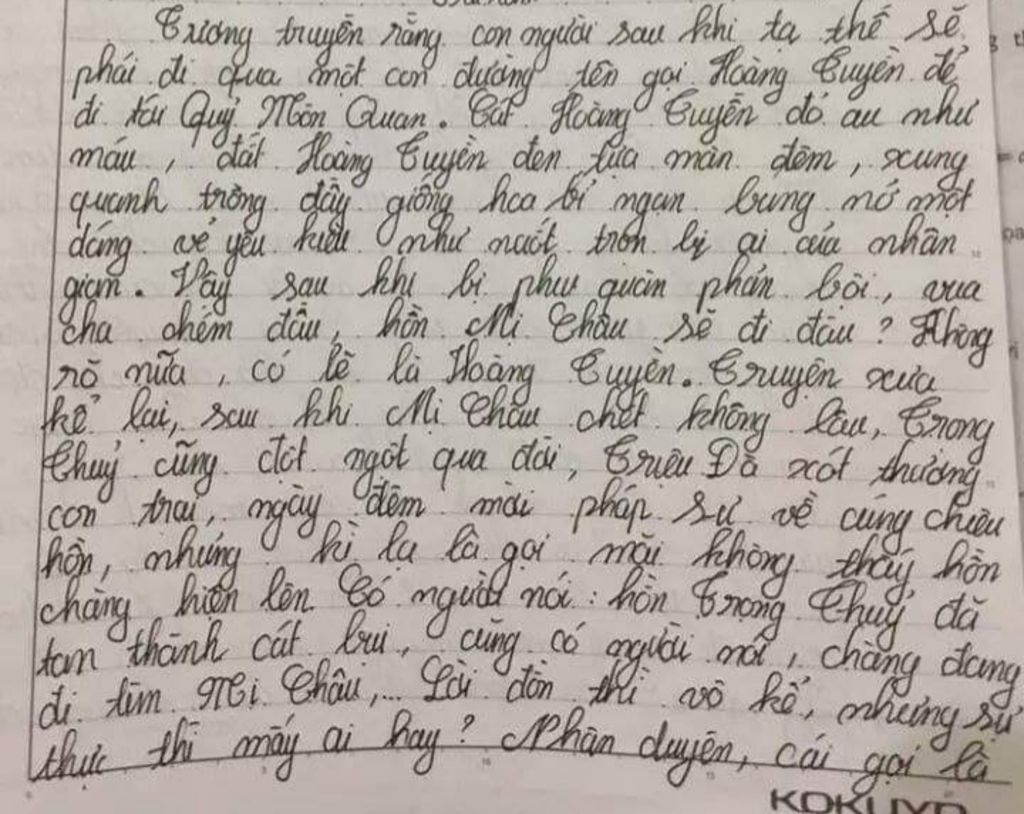 Tương truyền rằng con người sau khi tạ thế sẽ
phải đi qua một con đường tên gọi Hoàng Tuyền để
đi tới Quỷ Môn Quan. Cát Hoàng Tuyền đỏ au như
máu, đất Hoàng Tuyền đen tựa màn đêm, xung
quanh trồng đầy giống hoa bỉ ngạn bung nở một
dáng vẻ yêu kiều như nuốt trọn bị ai của nhân
gian. Vậy sau khi bị phu quân phản bội, vua
cha chém đầu, hồn Mị Châu sẽ đi đâu? Không
rõ nữa, có lẽ là Hoàng Tuyền. Truyện xưa
kể lại, sau khi Mị Châu chết không lâu, Trọng
Thuỷ cũng đột ngột qua đời, Triệu Đà xót thương
con trai, ngày đêm mời pháp sư về cúng chiêu
hồn, nhưng kì lạ là gọi mãi không thấy hồn
chàng hiện lên Có người nói: hồn Trọng Thuỷ đã
tan thành cát bụi, cũng có người nói, chàng đang
đi tìm Mị Châu,... Lời đồn thì vô kể, nhưng sự
thực thì mấy ai hay? Nhân duyên, cái gọi là
KOKUYO